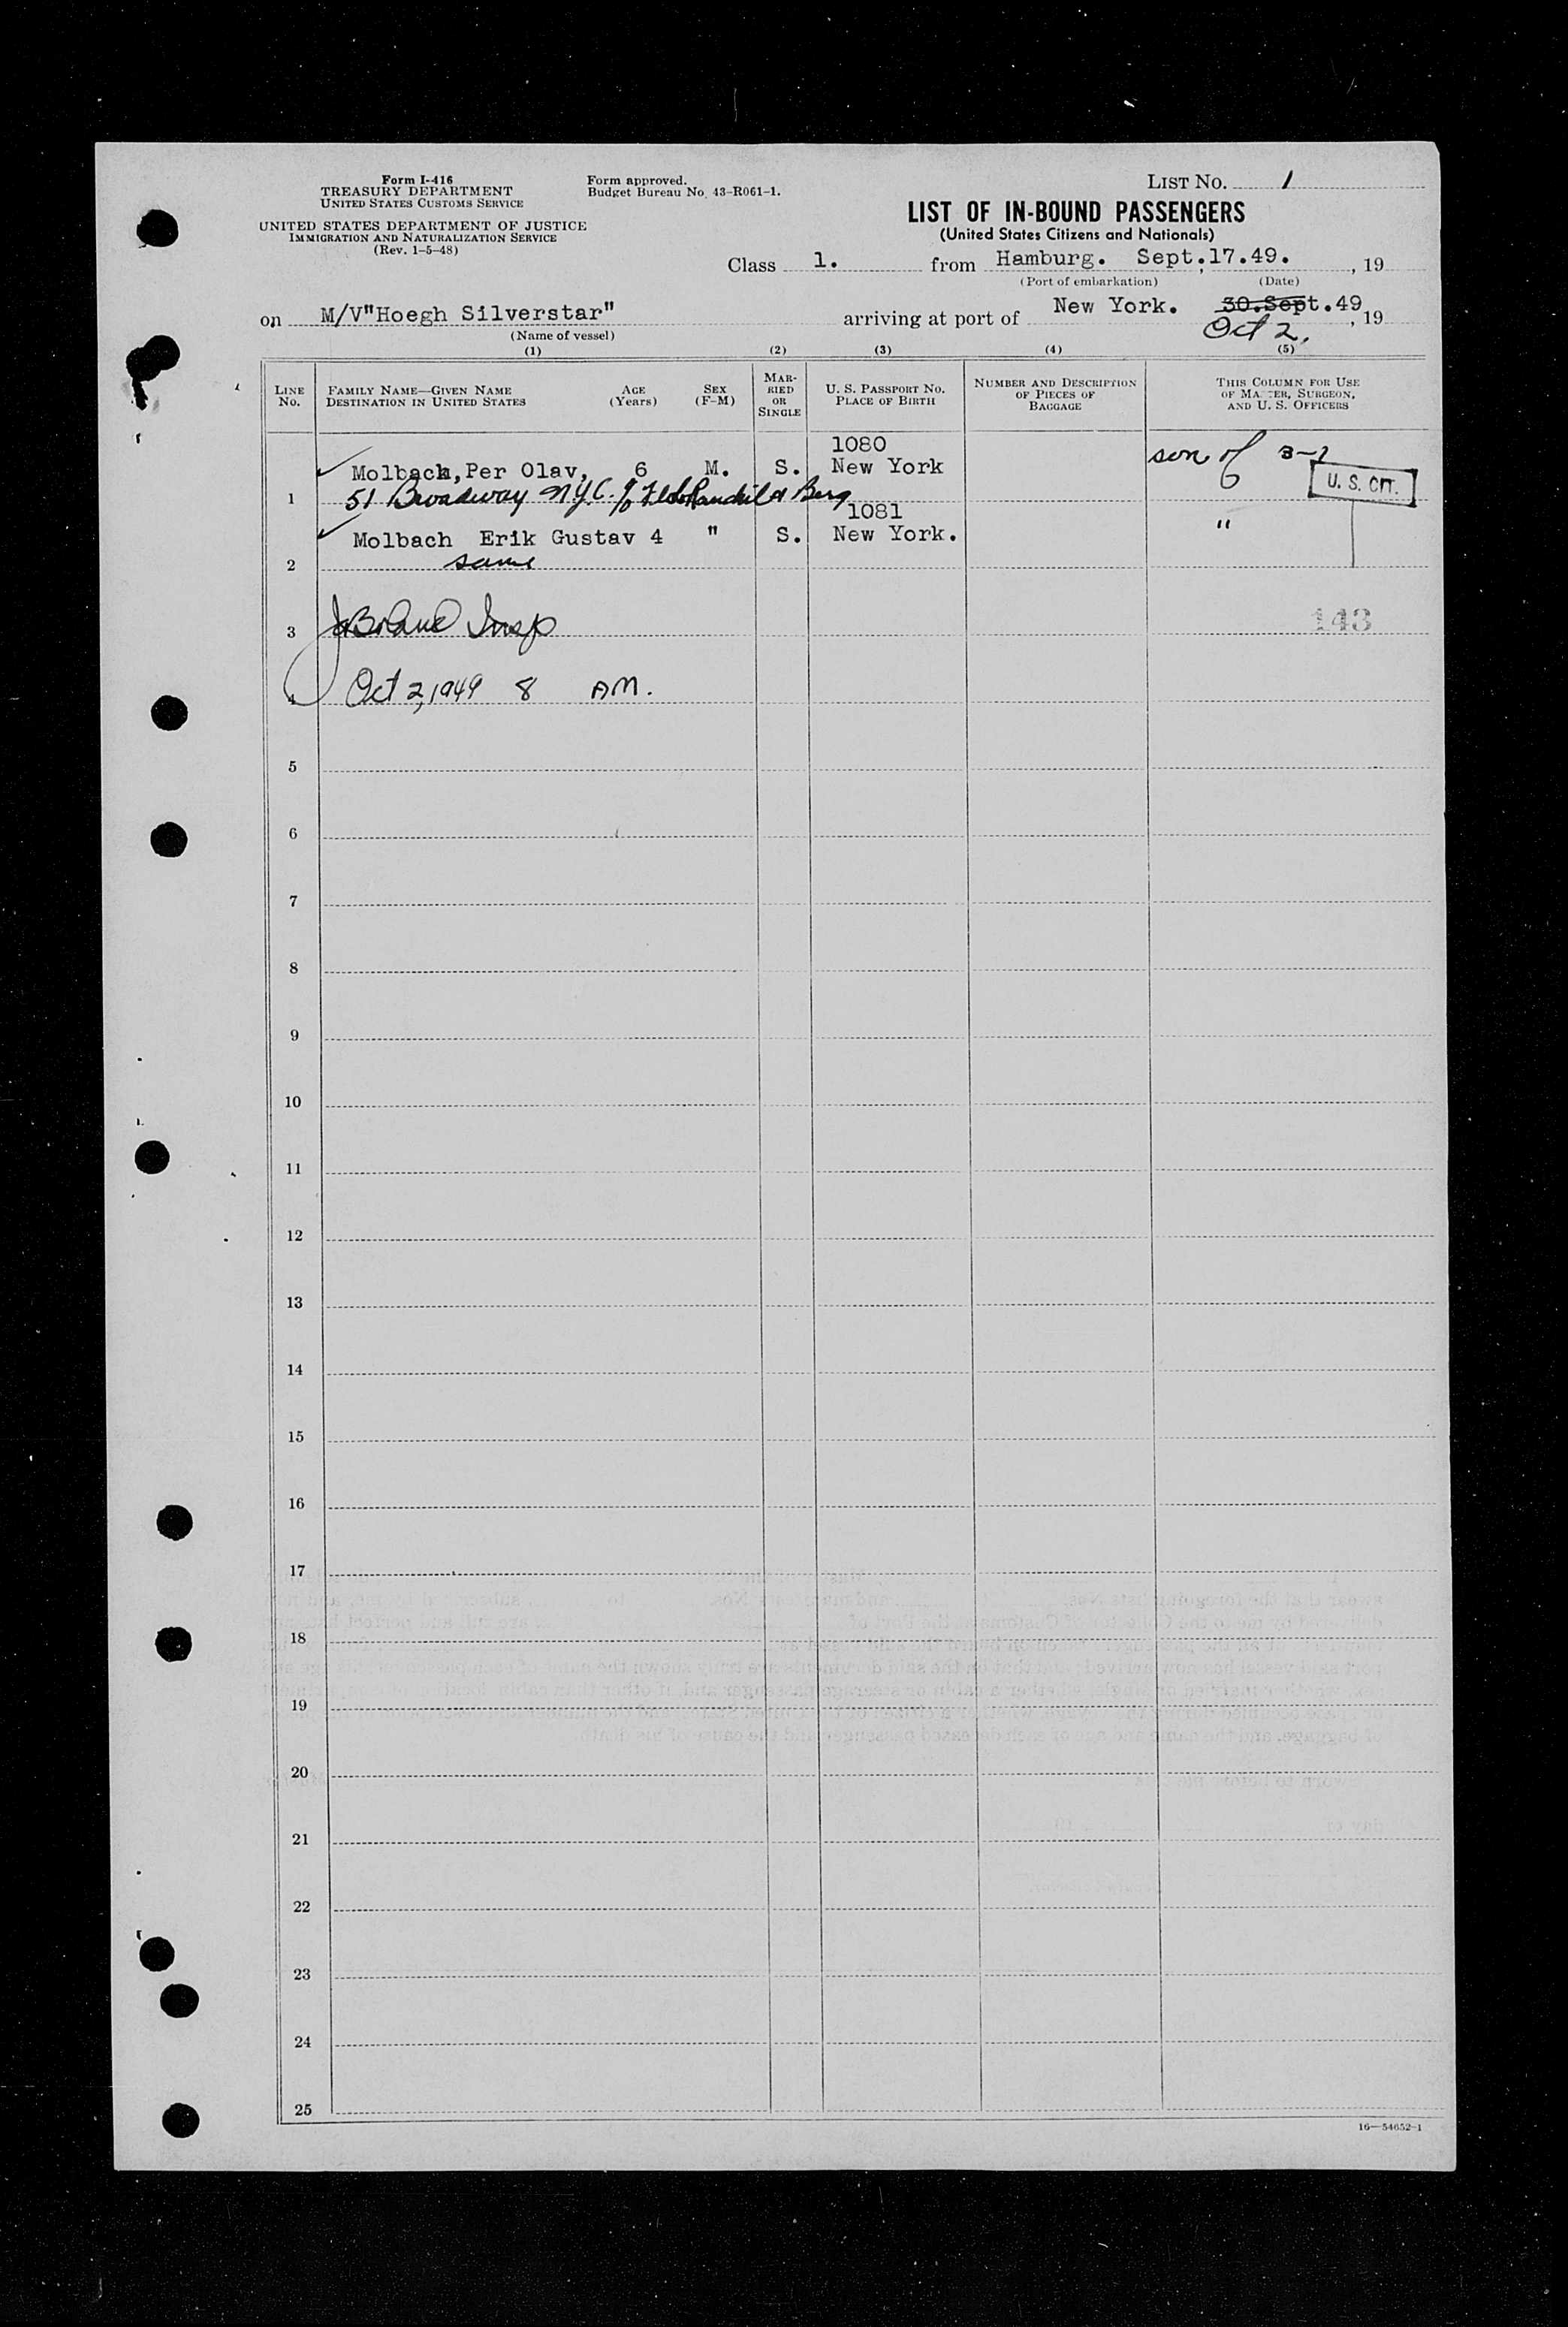 Form I-416
TREASURY DEPARTMENT
UNITED STATES CUSTOMS SERVICE
UNITED STATES DEPARTMENT OF JUSTICE
IMMIGRATION AND NATURALIZATION SERVICE
(Rev. 1-5-48)
Form approved.
Budget Bureau No. 43-R061-1.
LIST No. 1
LIST OF IN-BOUND PASSENGERS
(United States Citizens and Nationals)
Class 1. from Hamburg. Sept.17.49., 19
(Port of embarkation) (Date)
on M/V"Hoegh Silverstar" arriving at port of New York. 30.Sept.49, 19
Oct 2,
(Name of vessel)
(1) (2) (3) (4) (5)
LINE No.
FAMILY NAME—GIVEN NAME
DESTINATION IN UNITED STATES
AGE (Years)
SEX (F-M)
MARRIED OR SINGLE
U. S. PASSPORT No.
PLACE OF BIRTH
NUMBER AND DESCRIPTION
OF PIECES OF
BAGGAGE
THIS COLUMN FOR USE
OF MASTER, SURGEON,
AND U. S. OFFICERS
1080
Molbach, Per Olav, 6 M. S. New York son of 3-1
1 51 Broadway N.Y.C. c/o Berg U. S. CIT.
1081
Molbach Erik Gustav 4 " S. New York. "
2 same
3 Insp 143
4 Oct 2, 1949 8 AM.
5
6
7
8
9
10
11
12
13
14
15
16
17
18
19
20
21
22
23
24
25
16—54652-1